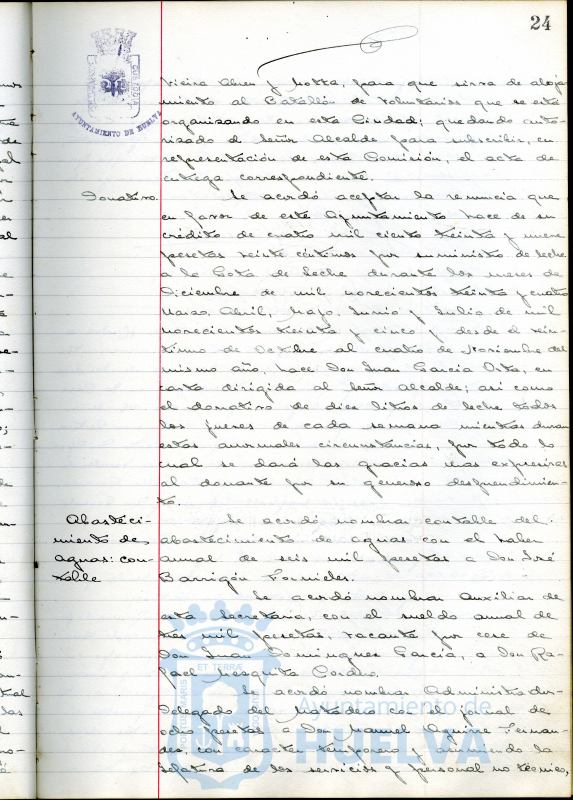 24
AYUNTAMIENTO DE HUELVA
Vieira Abreu y Motta, para que sirva de aloja-
miento al Batallón de Voluntarios que se está
organizando en esta Ciudad; quedando auto-
rizado el Señor Alcalde para subscribir, en
representación de esta Comisión, el acta de
entrega correspondiente.
Donativo.
Se acordó aceptar la renuncia que
en favor de este Ayuntamiento hace de su
crédito de cuatro mil ciento treinta y nueve
pesetas veinte céntimos por suministro de leche
a la Gota de Leche durante los meses de
Diciembre de mil novecientos treinta y cuatro
Marzo, Abril, Mayo, Junio y Julio de mil
novecientos treinta y cinco y desde el vein-
tiuno de Octubre al cuatro de Noviembre del
mismo año, hace Don Juan Garcia Orta, en
carta dirigida al Señor Alcalde; así como
el donativo de diez litros de leche todos
los jueves de cada semana mientras duran
estas anormales circunstancias, por todo lo
cual se dará las gracias mas expresivas
al donante por su generoso desprendimien-
to.
Abasteci-
miento de
aguas: con-
table
Se acordó nombrar contable del
abastecimiento de aguas con el haber
anual de seis mil pesetas a Don José
Barrigón Fornieles.
Se acordó nombrar Auxiliar de
esta Secretaría, con el sueldo anual de
tres mil pesetas, vacante por cese de
Don Juan Dominguez Garcia, a Don Ra-
fael Mezquita
Se acordó nombrar Administrador-
Delegado del Matadero con el jornal de
ocho pesetas a Don Manuel Aguirre Fernan-
dez, con caracter temporero y asumiendo la
Jefatura de los servicios y personal no técnico,
Ayuntamiento de
HUELVA